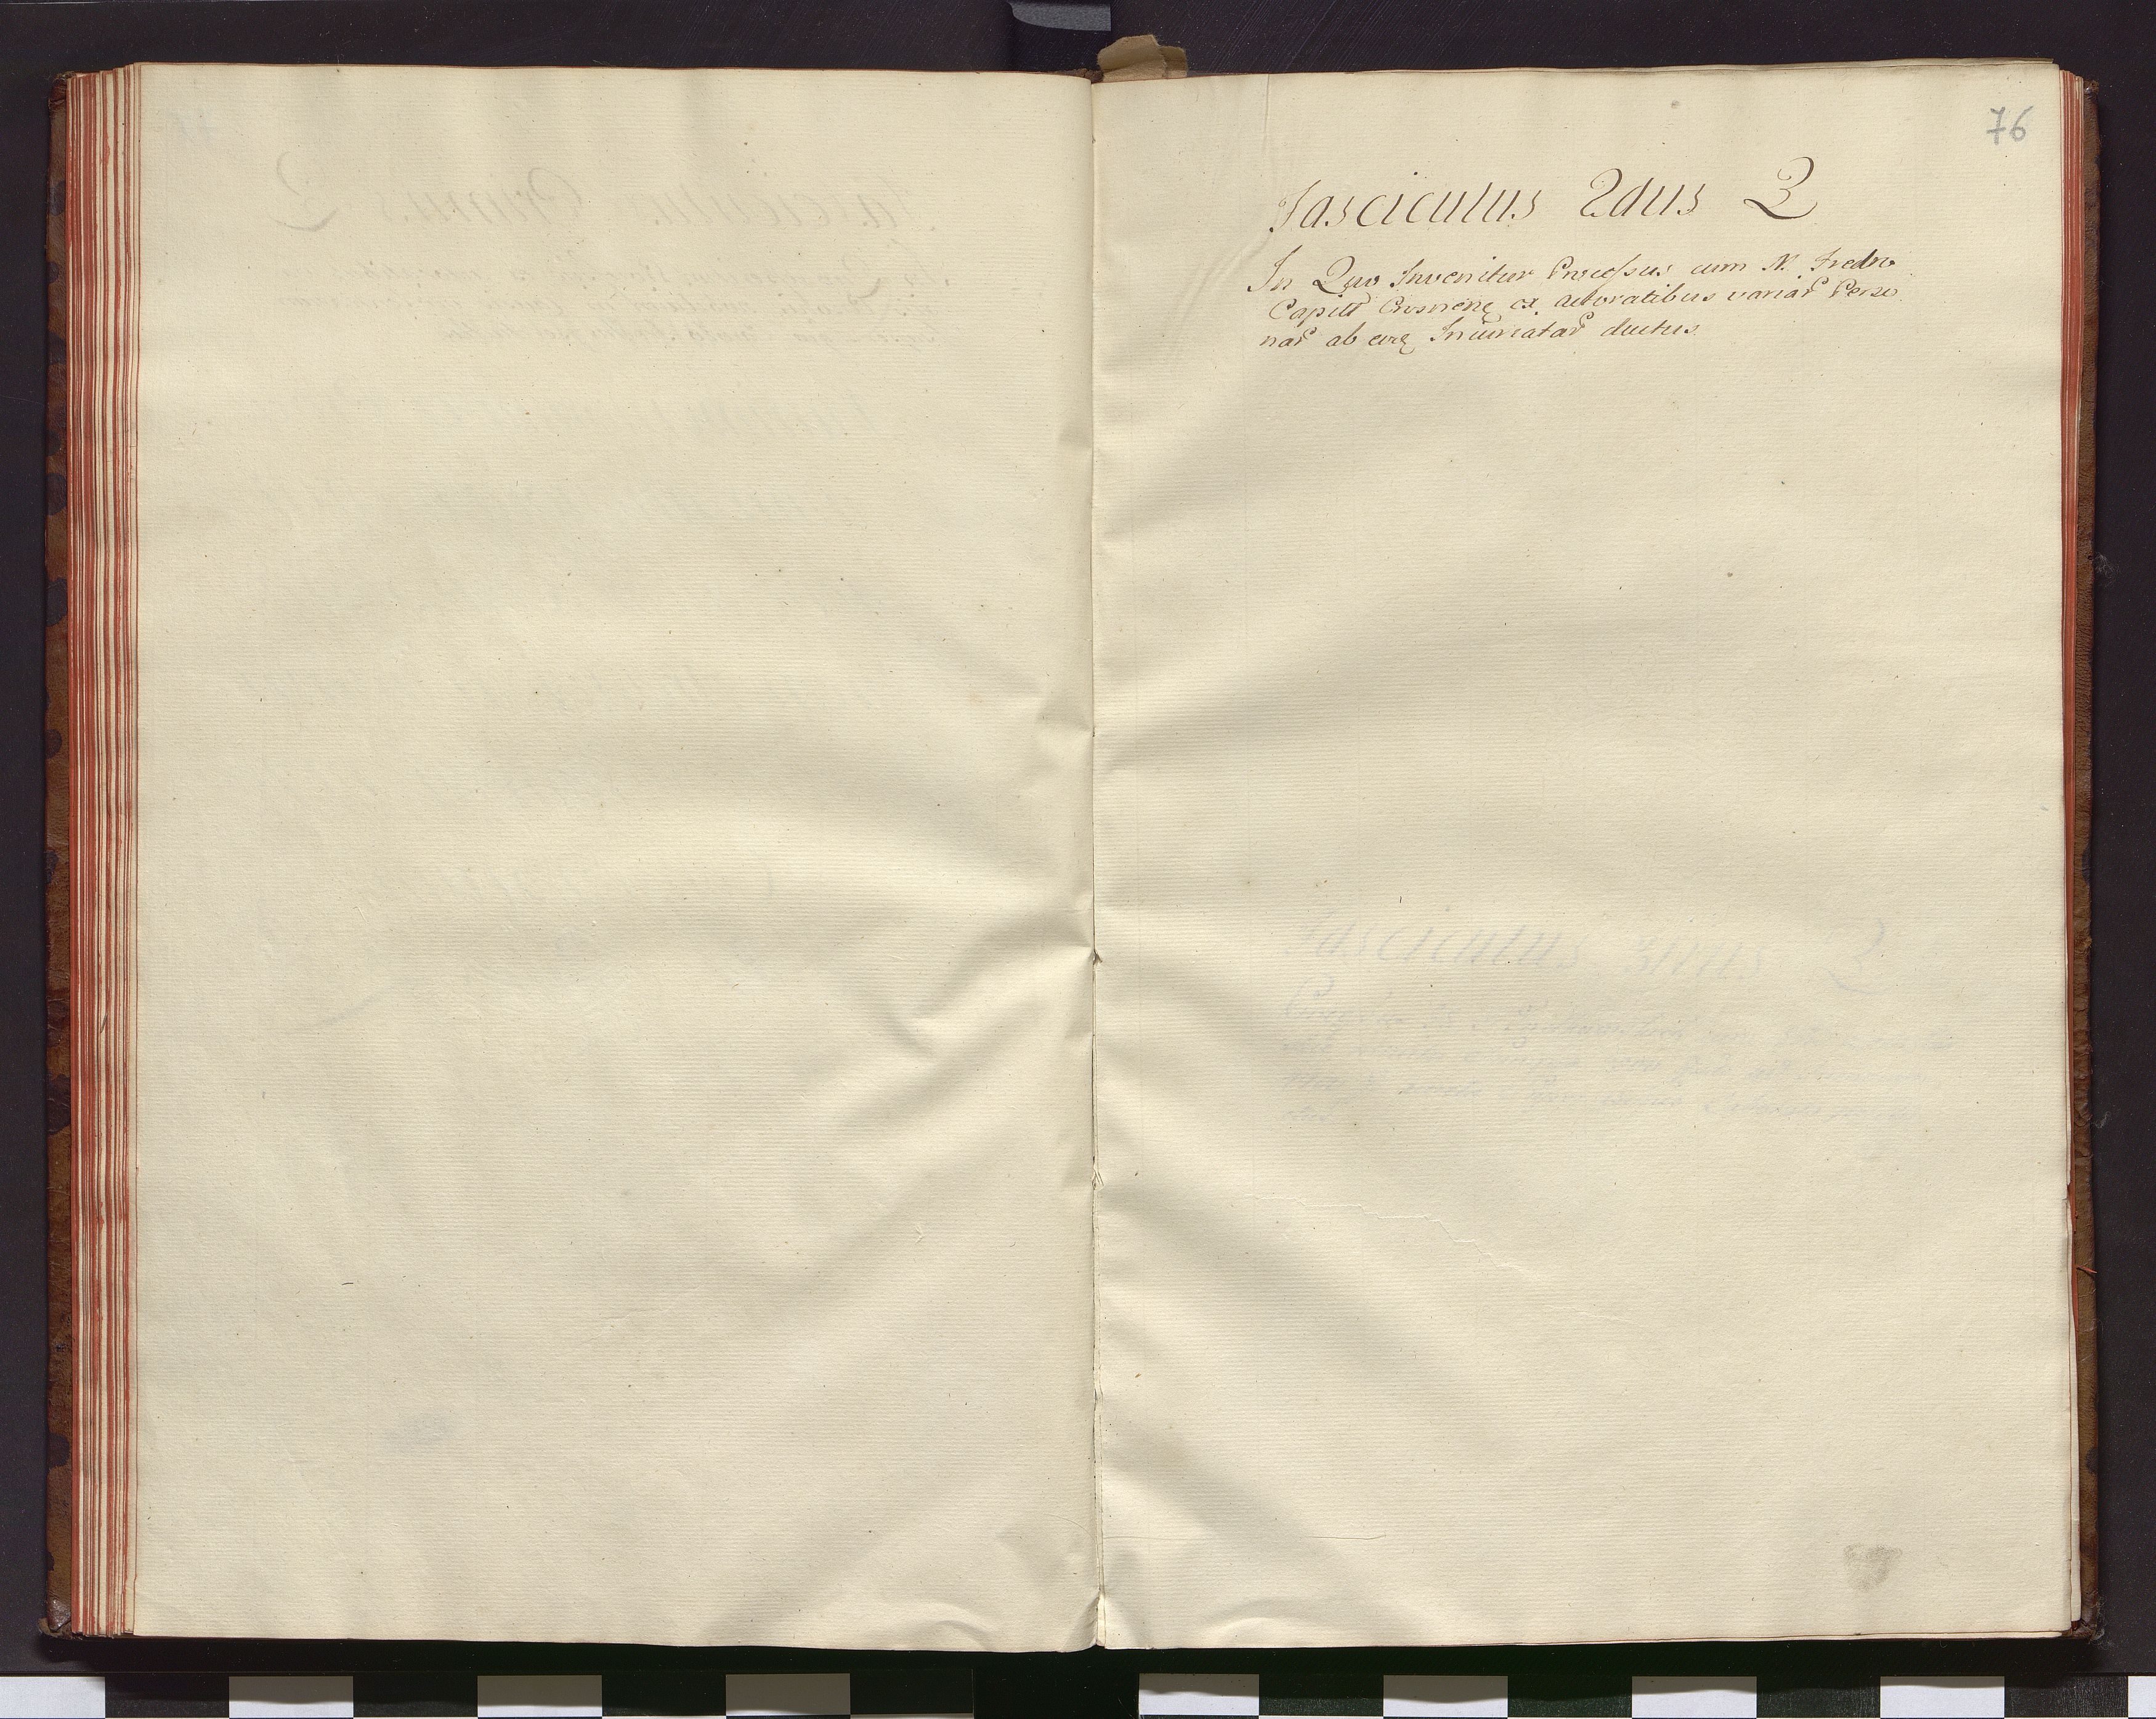 76
Fasciculus 2dus 2
In Quo Invenitur Processus cum M. Fredro
Capitt Crosnen ex actoratibus variar Perso
nar ab eoq Iniuriatar ductus